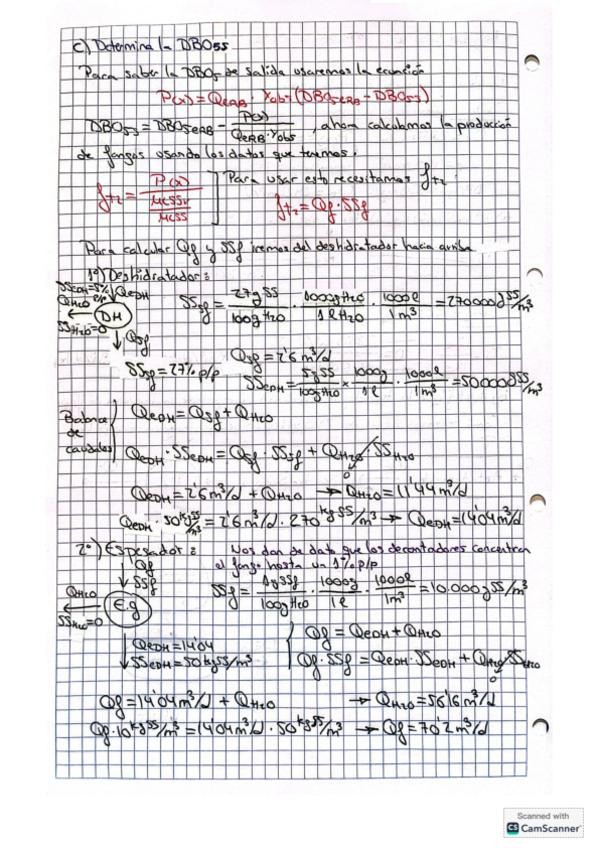 c) Determina la DBO5s
Para saber la DBO5 de salida usaremos la ecuación
P(x) = QERB · Yobs (DBO5ERB - DBO5s)
DBO5s = DBO5ERB - P(x) / QERB · Yobs , ahora calculamos la producción
de fangos usando los datos que tenemos.
ft2 = P(x) / (MLSSV / MLSS) ] Para usar esto necesitamos ft2
ft2 = Qf · SSf
Para calcular Qf y SSf iremos del deshidratador hacia arriba
1º) Deshidratador:
SSEDH = 5% p/p ↓ QEDH
QH2O ← DH
SSH2O = 0
↓ QSf
SSSf = 27% p/p
SSSf = 27g SS / 100g H2O · 1000g H2O / 1l H2O · 1000l / 1m³ = 270000 g SS/m³
QSf = 2'6 m³/d
SSEDH = 5g SS / 100g H2O × 1000g / 1l · 1000l / 1m³ = 50000 g SS/m³
Balance de caudales
QEDH = QSf + QH2O
QEDH · SSEDH = QSf · SSSf + QH2O · SSH2O 0
QEDH = 2'6 m³/d + QH2O → QH2O = 11'44 m³/d
QEDH · 50 kg SS/m³ = 2'6 m³/d · 270 kg SS/m³ → QEDH = 14'04 m³/d
2º) Espesador: Nos dan de dato que los decantadores concentran
el fango hasta un 1% p/p
↓ Qf
SSf
QH2O ← E.g
SSH2O = 0
SSf = 1g SSf / 100g H2O · 1000g / 1l · 1000l / 1m³ = 10.000 g SS/m³
QEDH = 14'04
↓ SSEDH = 50 kg SS/m³
Qf = QEDH + QH2O
Qf · SSf = QEDH · SSEDH + QH2O · SSH2O 0
Qf = 14'04 m³/d + QH2O → QH2O = 56'16 m³/d
Qf · 10 kg SS/m³ = 14'04 m³/d · 50 kg SS/m³ → Qf = 70'2 m³/d
Scanned with
CS CamScanner